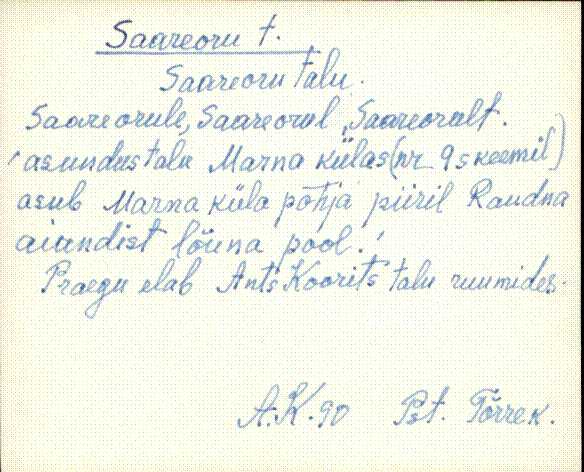 Saareoru t.
Saareoru talu.
Saareorule, Saareorul, Saareorult.
asundustalu Marna külas (nr 9 skeemil)
asub Marna küla põhja piiril Raudna
aiandist lõuna pool.
Praegu elab Ants Koorits talu ruumides.
A.K. 90 Pst. Tõrrek.